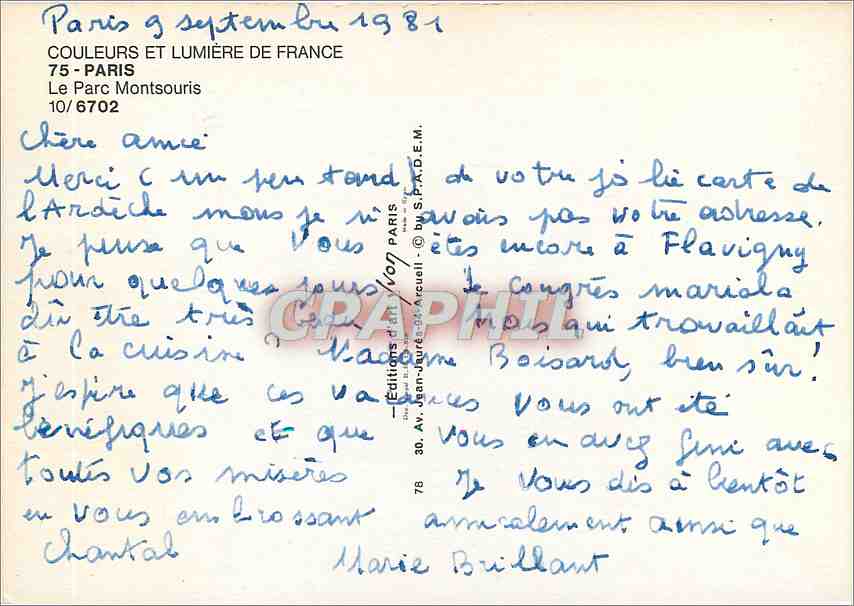 Paris 9 septembre 1981
COULEURS ET LUMIÈRE DE FRANCE
75 - PARIS
Le Parc Montsouris
10/ 6702
Chère amie
Merci ( un peu tard) de votre jolie carte de
l'Ardèche mais je n'avais pas votre adresse.
Je pense que vous êtes encore à Flavigny
pour quelques jours Le Congrès marial a
dû être très beau Mais qui travaillait
à la cuisine? Madame Boisard, bien sûr!
J'espère que ces vacances vous ont été
bénéfiques et que vous en avez fini avec
toutes vos misères Je vous dis à bientôt
en vous embrassant amicalement ainsi que
Chantal
Marie Brillant
— Editions d'art Yvon PARIS
78 30. Av. Jean-Jaurès-94-Arcueil - © by S.P.A.D.E.M.
CPAPHIL